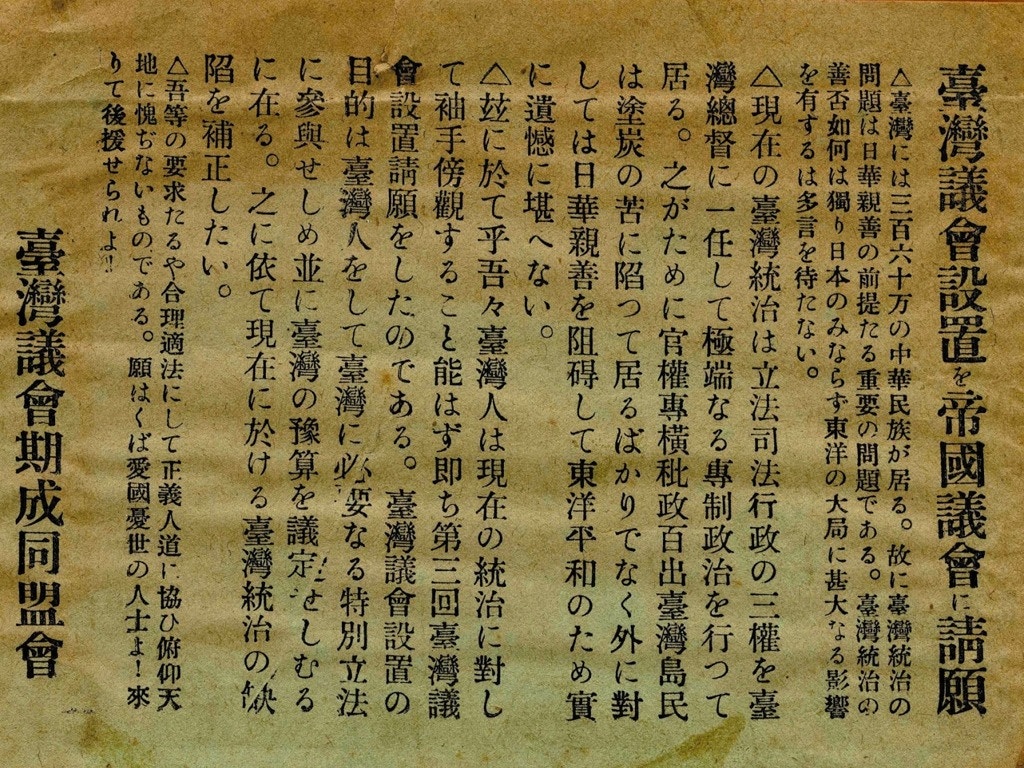 臺灣議會設置を帝國議會に請願
△臺灣には三百六十万の中華民族が居る。故に臺灣統治の
問題は日華親善の前提たる重要の問題である。臺灣統治の
善否如何は獨り日本のみならず東洋の大局に甚大なる影響
を有するは多言を待たない。
△現在の臺灣統治は立法司法行政の三權を臺
灣總督に一任して極端なる專制政治を行つて
居る。之がために官權專横秕政百出臺灣島民
は塗炭の苦に陷つて居るばかりでなく外に對
しては日華親善を阻碍して東洋平和のため實
に遺憾に堪へない。
△玆に於て乎吾々臺灣人は現在の統治に對し
て袖手傍觀すること能はず即ち第三回臺灣議
會設置請願をしたのである。臺灣議會設置の
目的は臺灣人をして臺灣に必要なる特別立法
に參與せしめ並に臺灣の豫算を議定せしむる
に在る。之に依て現在に於ける臺灣統治の缺
陷を補正したい。
△吾等の要求たるや合理適法にして正義人道に協ひ俯仰天
地に愧ぢないものである。願はくば愛國憂世の人士よ!來
りて後援せられよ!!
臺灣議會期成同盟會